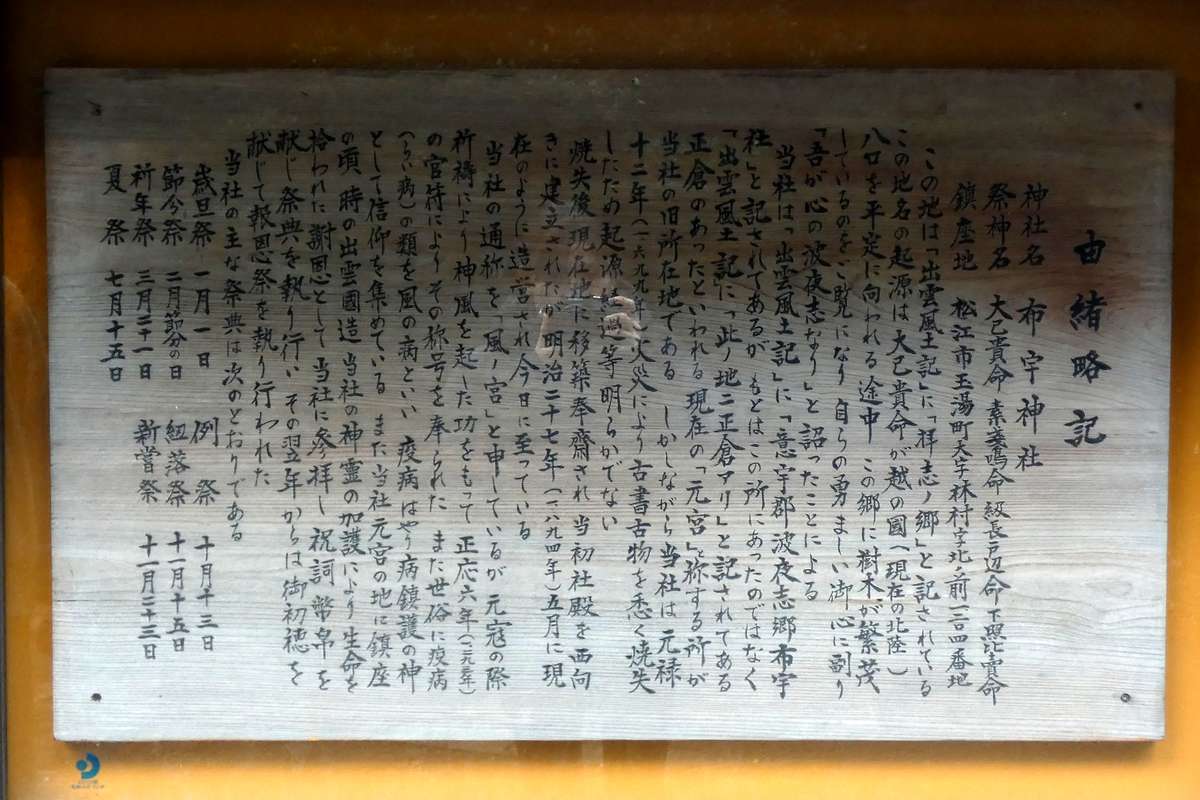 由緒略記
神社名 布宇神社
祭神名 大己貴命 素戔嗚命 級長戸辺命 下照比賣命
鎮座地 松江市玉湯町大字林村字北ノ前一二〇四番地
この地は「出雲風土記」に「拝志ノ郷」と記されている
この地名の起源は大己貴命が越の國(現在の北陸)
八口を平定に向われる途中 この郷に樹木が繁茂
しているのをご覧になり 自らの勇ましい御心に副り
「吾が心の波夜志なり」と詔ったことによる
当社は「出雲風土記」に「意宇郡波夜志郷布宇
社」と記されてあるが もとはこの所にあったのではなく
「出雲風土記」に「此ノ地ニ正倉アリ」と記されてある
正倉のあったといわれる現在の「元宮」と称する所が
当社の旧所在地である しかしながら当社は元禄
十二年(一六九九年)火災により古書古物を悉く焼失
したため起源 過等明らかでない
焼失後現在地に移築奉齋され当初社殿を西向
きに建立されたが明治二十七年(一八九四年)五月に現
在のように造営され今日に至っている
当社の通称を「風ノ宮」と申しているが元寇の際
祈祷により神風を起した功をもって正応六年
の官符によりその称号を奉られた また世俗に疫病
(らい病)の類を風の病といい 疫病はやり病鎮護の神
として信仰を集めている また当社元宮の地に鎮座
の頃 時の出雲國造 当社の神霊の加護により生命を
拾われた謝恩として 当社に参拝し祝詞幣帛を
献じ祭典を執り行い その翌年からは御初穂を
献じて報恩祭を執り行われた
当社の主な祭典は次のとおりである
歳旦祭 一月一日 例祭 十月十三日
節分祭 二月節分の日 紐落祭 十一月十五日
祈年祭 三月二十一日 新嘗祭 十一月二十三日
夏祭 七月十五日